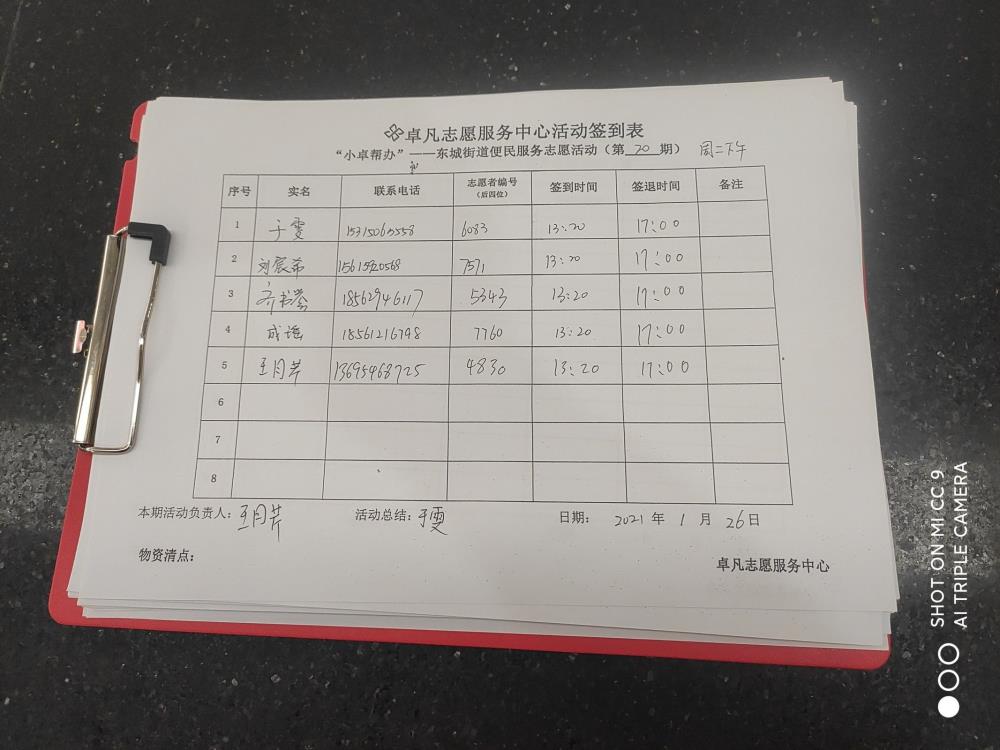 卓凡志愿服务中心活动签到表
“小卓帮办”——东城街道便民服务志愿活动（第 20 期） 周二下午
序号 实名 联系电话 志愿者编号（后四位） 签到时间 签退时间 备注
1 于雯 6083 13:20 17:00
2 刘宸希 15615920568 7571 13:20 17:00
3 齐书莹 18562946117 5343 13:20 17:00
4 成瑶 18561216798 7760 13:20 17:00
5 王月芹 13695468725 4830 13:20 17:00
6
7
8
本期活动负责人：王月芹 活动总结：于雯 日期： 2021 年 1 月 26 日
物资清点： 卓凡志愿服务中心
SHOT ON MI CC 9
AI TRIPLE CAMERA